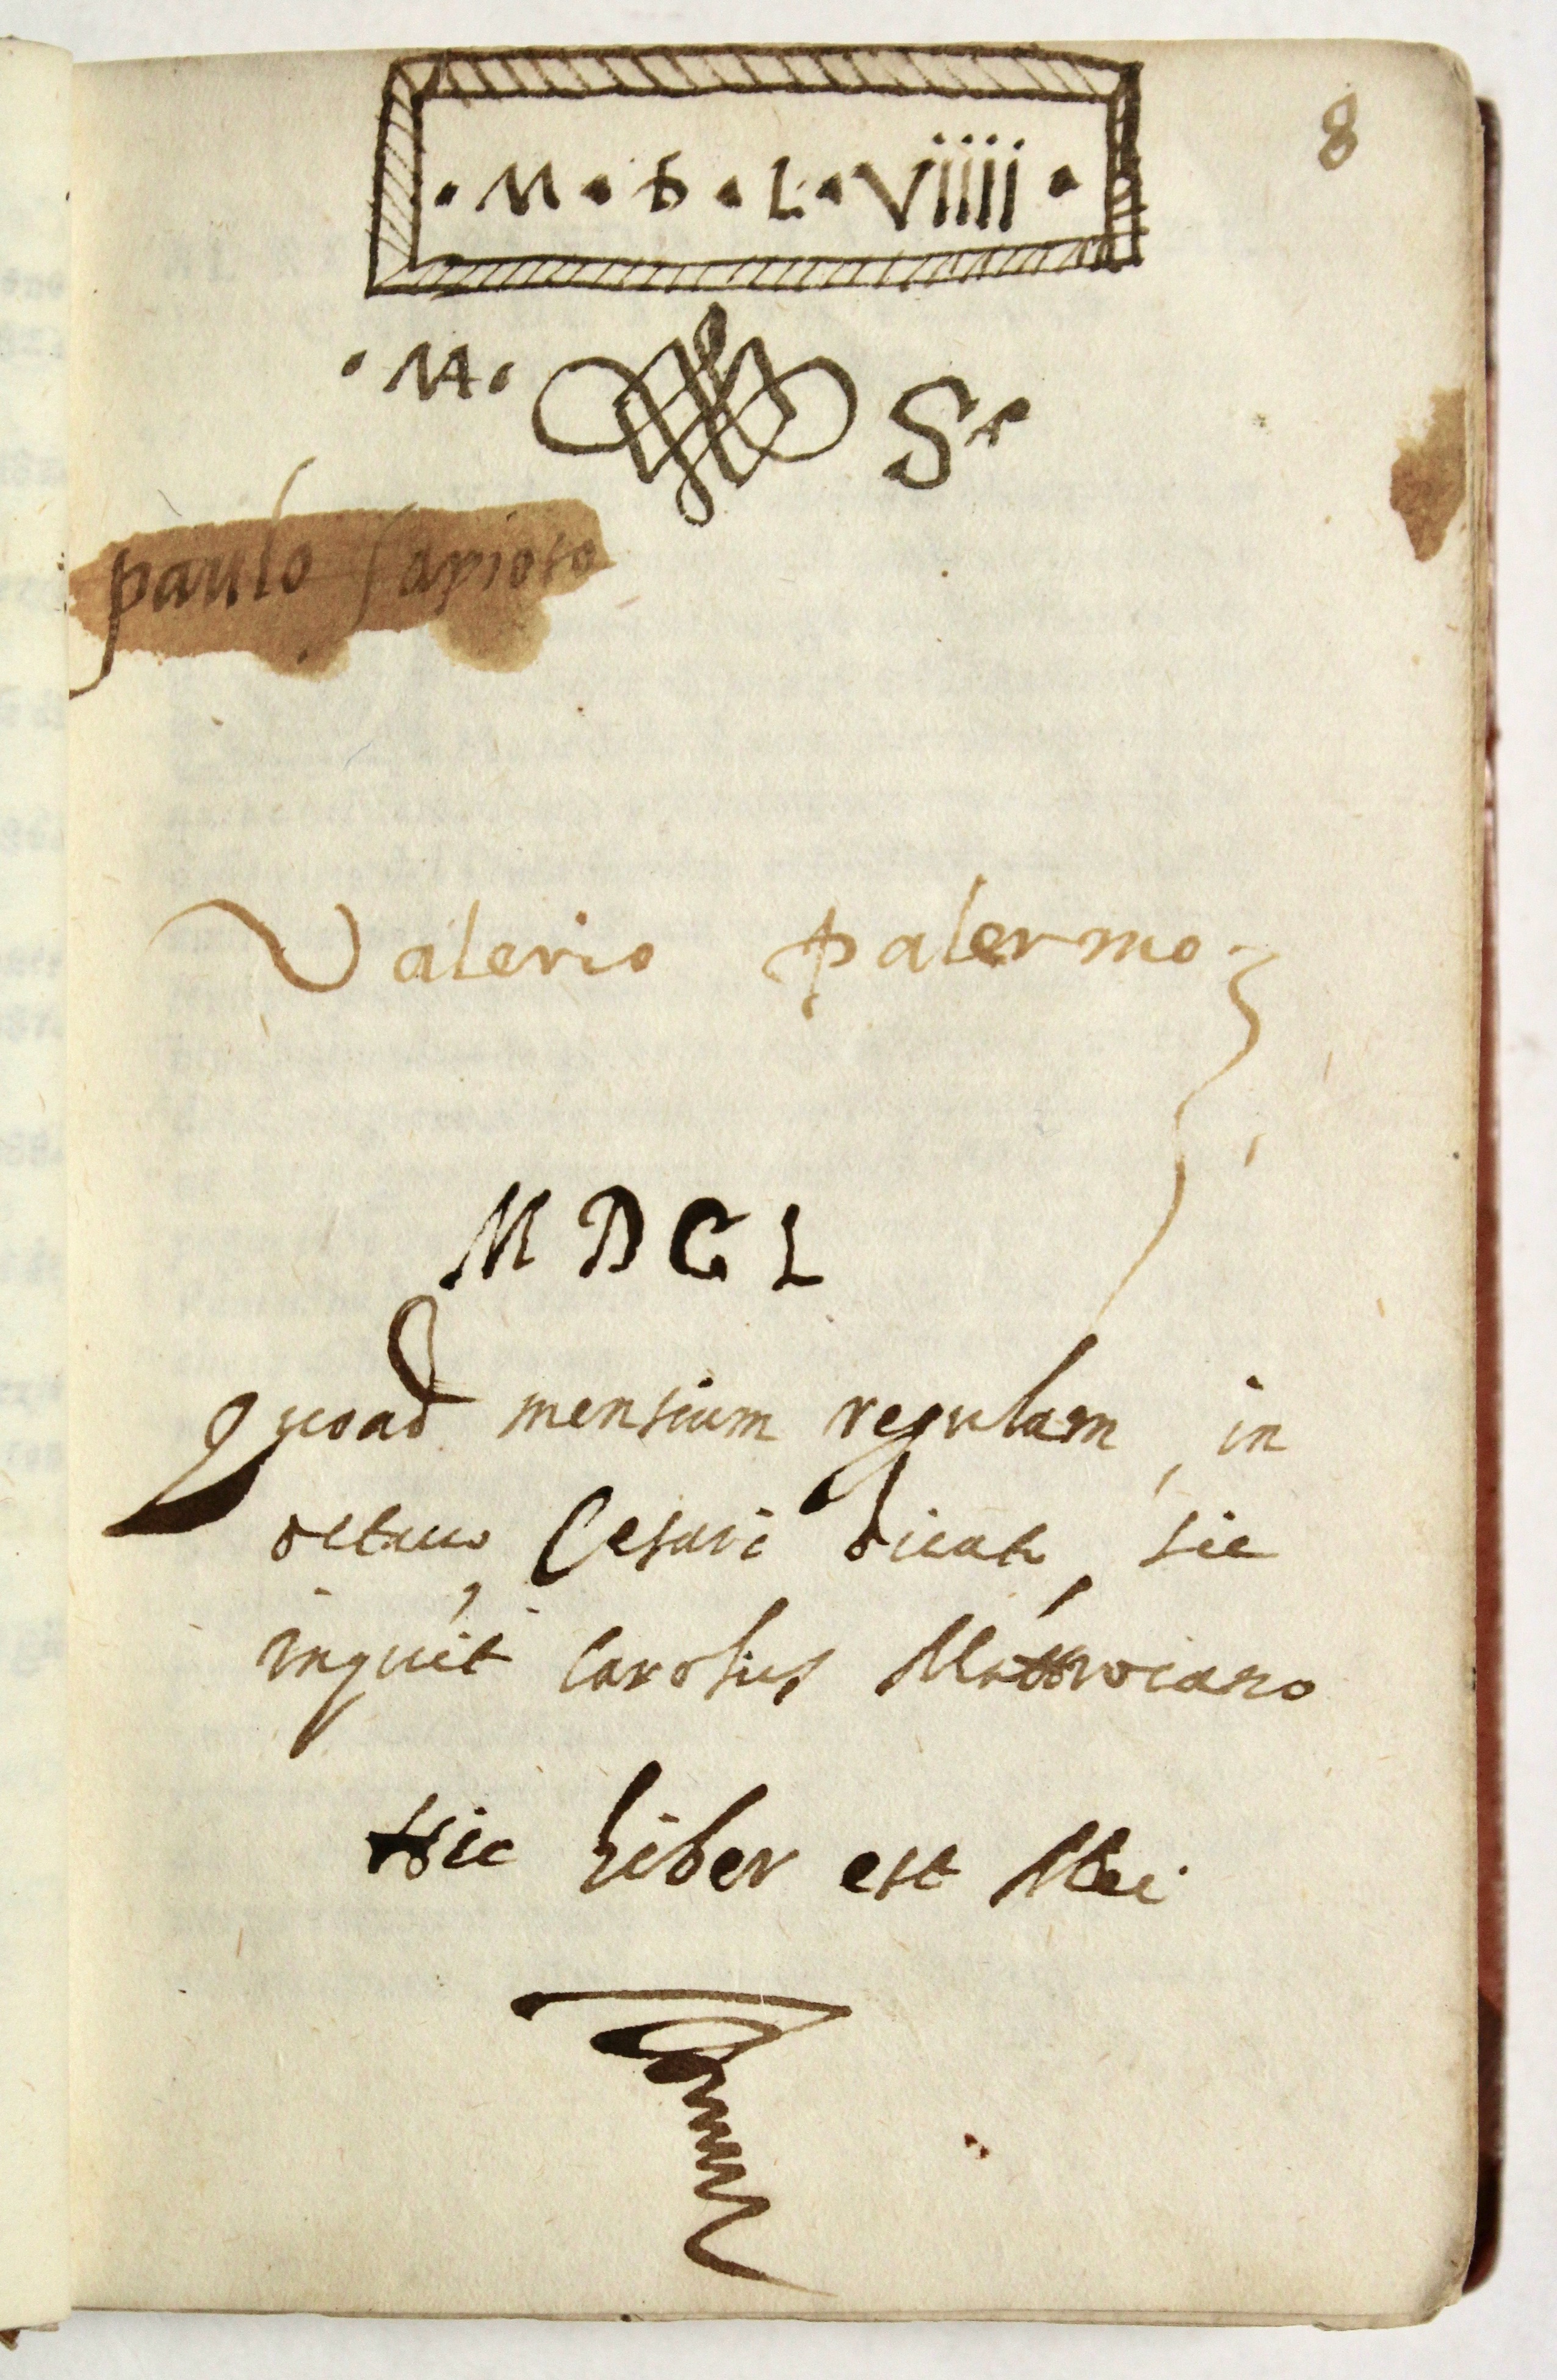 8
· M · D · L · Viiii ·
· M · Sr
paulo sapioso
Valerio palermo
M D C L
Quoad mensium regulam, in
octavo Cesari dicato, sic
inquit Carolus
Hic liber est Mei